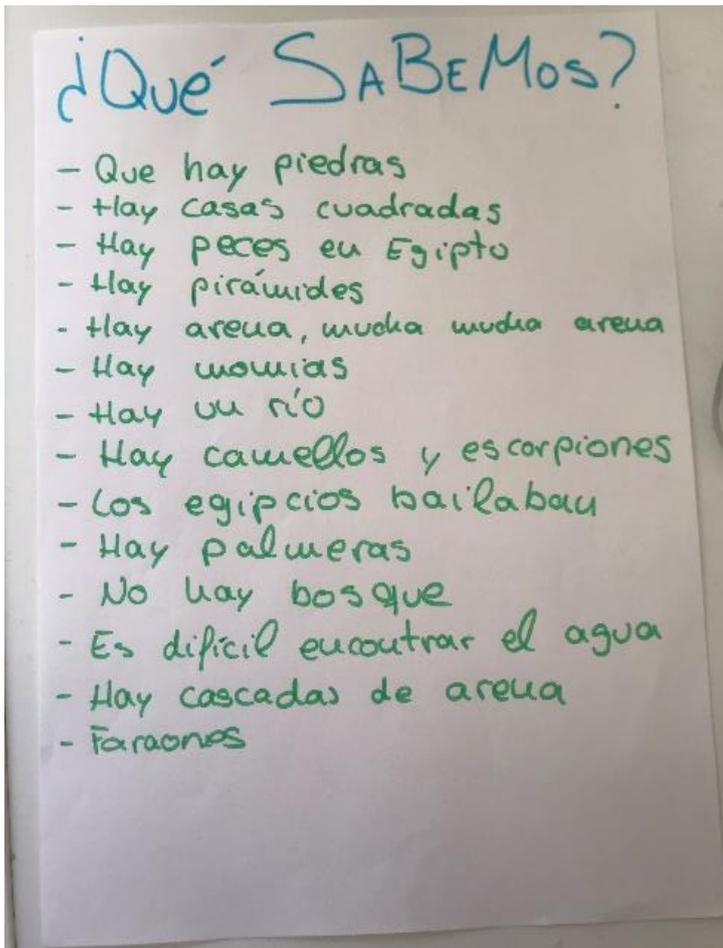 ¿Qué SABEMos?
- Que hay piedras
- Hay casas cuadradas
- Hay peces en Egipto
- Hay pirámides
- Hay arena, mucha mucha arena
- Hay momias
- Hay un río
- Hay camellos y escorpiones
- Los egipcios bailaban
- Hay palmeras
- No hay bosque
- Es difícil encontrar el agua
- Hay cascadas de arena
- Faraones